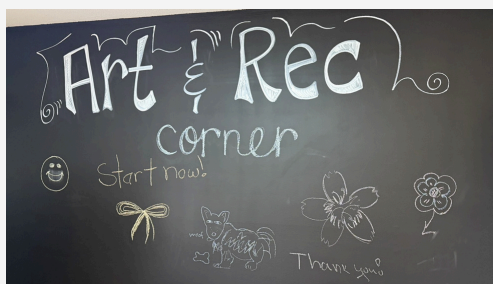 Art & Rec
corner
Start now!
Thank you!